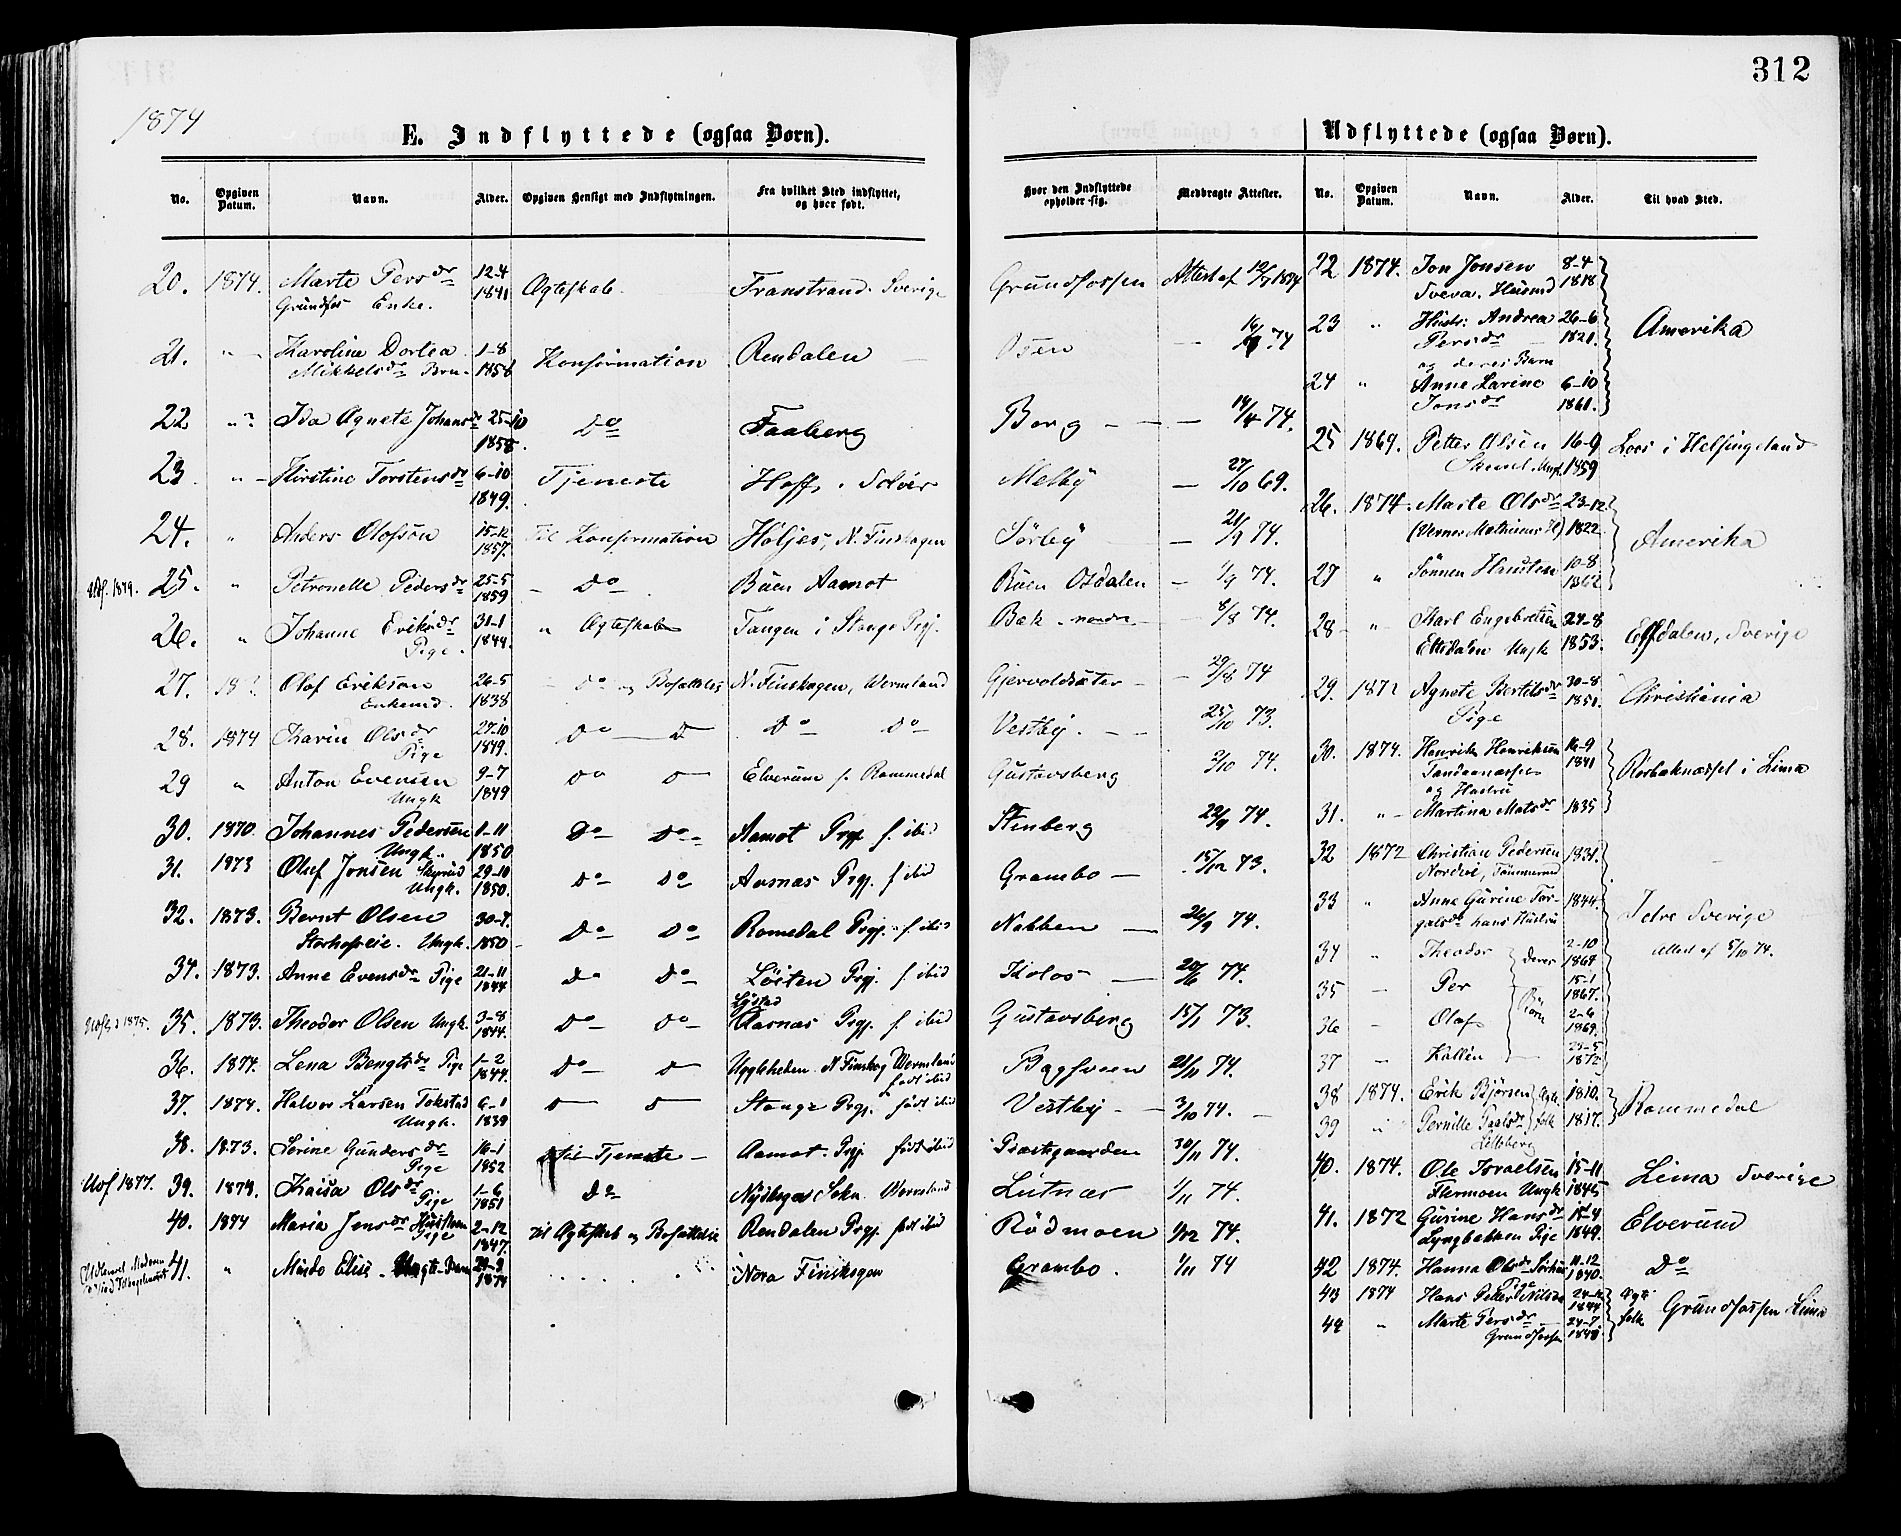 312
1874
E. Indflyttede (ogsaa Børn).
No. Opgiven Datum. Navn. Alder. Opgiven Hensigt med Indflytningen. Fra hvilket Sted indflyttet, og hvor født. Hvor den Indflyttede opholder sig. Medbragte Attester.
20. 1874. Marte Persdr 12-4 Ægteskab. Transtrand. Sverige Grundfossen Attest af 12/7 1874
Grundfos Enke. 1841
21. " Karoline Dortea 1-8 Konfirmation Rendalen Osen 74
Mikkelsdr 1858
22 " Ida Agnete Johansdr 25-10 Do Faaberg Berg 14/4 74.
1858.
23 " Kirstine Torstensdr 6-10 Tjeneste Hoff, Solør Melby 27/10 69.
1849.
24. " Anders Olofson 15-12 Til Konfirmation Höljes, N. Finskogen Sörby 21/9 74.
1857.
Udf. 1879. 25. " Petronelle Pedersdr 25-5 Do Buen Aamot Bäen Osdalen 1/9 74.
1859
26. " Johanne Eriksdr 31-1 " Ægteskab Tangen i Stange Prgj. Bæk nordre 8/8 74.
Pige. 1844.
27. 187 Olof Erikson 26-5 Do og Bosættelse N. Finskogen, Wermland Gjervoldsæter 29/8 74
Enkemd. 1838
28. 1874 Karin Olsdr 27-10 Do Do Do Do Vestby. 25/10 73.
Pige 1849.
29 " Anton Evensen 9-7 Do Do Elverum f. Rommedal Gustavsberg 2/10 74.
Ungk 1849
30. 1870. Johannes Pedersen 1-11 Do Do Aamot Prgj. f. ibid Stenberg 22/9 74.
Ungk. 1850
31. 1873 Oluf Jonsen 29-10 Do Do Aasnæs Prgj. f ibid Grambo 15/12 73.
Ungk. 1850.
32. 1873. Bernt Olsen 30-7. Do Do Romedal Prgj. f ibid Nabben 26/9 74.
Storhofseie. Ungk. 1850
34. 1873. Anne Evensdr Pige 21-11 Do Do Löiten Prgj. f ibid Kolos 20/6 74.
1844
35. 1873. Theodor Olsen Ungk. 3-8 Do Do Aasnæs Prgj. f. ibid Gustavsberg 15/1 73.
1844.
36. 1874. Lena Bengtsdr Pige 1-2 Do Do Uggleheden N. Finskog Wermland Bagfveen 21/11 74.
1844. født ibid
37. 1874. Halvor Larsen Tokstad 6-1 Do Do Stange Prgj. født ibid Vestby 3/10 74.
Ungk. 1839
38. 1873. Serine Gundersdr 16-1 til Tjeneste Aamot. Prgj. født ibid Præstgaarden 30/11 74.
Pige 1852
Udf 1877. 39. 1874. Kaisa Olsdr 1-6 Do Sokn. Wermland Lutnæs 1/11 74.
Pige 1851
40. 1874 Maria Jensdr 2-12 til Ægteskab og Bosættelse Rendalen Prgj. født ibid Rödmoen 1/12 74.
Pige 1847.
41. " Elise 1874 Nora Finskogen Grambo. 1/11 74
Udflyttede (ogsaa Børn).
No. Opgiven Datum. Navn. Alder. Til hvad Sted.
22 1874. Jon Jonsen 8-4
Sveva. Husmd 1818
23 " Hustr: Andrea 26-6 Amerika
Persdr 1820.
og deres Barn
24 " Anne Larine 6-10
Jonsdr 1861.
25 1869. Petter Olsen 16-9 Loos i Helsingeland
Ungk. 1859
26. 1874. Marte Olsdr 23-12
1822. Amerika
27 " Sönnen 10-8
28 " Karl Engebretsen 24-8 Elfdalen, Sverige
Ungk 1853.
29. 1872 Agnete Bertelsdr 30-8 Christiania
Pige 1850.
30. 1874. Henrik Henriksen 16-9
1841
og Hustru
31. " Martina Matsdr 1835 i Lima
32 1872 Christian Pedersen 1831.
Nordvi,
33 " Anne Gurine 1844.
hans Hustru Idre Sverige
34 " Theodor deres Børn 2-10 Attest af 5/10 74.
1864
35 Per 15-1
1867.
36 Olaf 2-6
1869.
37 25-5
1872
38 1874. Erik Björsen Ægte 1810.
39 " Pernille Paalsdr folk 1817. Rommedal
Lilleberg
40. 1874. Ole Israelsen 15-11 Lima Sverige
Flermoen Ungk 1845
41. 1872 Gurine Hansdr Elverum
Lyngbakken Pige 1849.
42 1874. Hanna Olsdr 11-12 Do
Pige 1840.
43 1874 Hans Petter Nilsen Ægte
1844 Grundfossen Lima
44 " Marte Persdr 24-7 folk
Grundfossen 1848